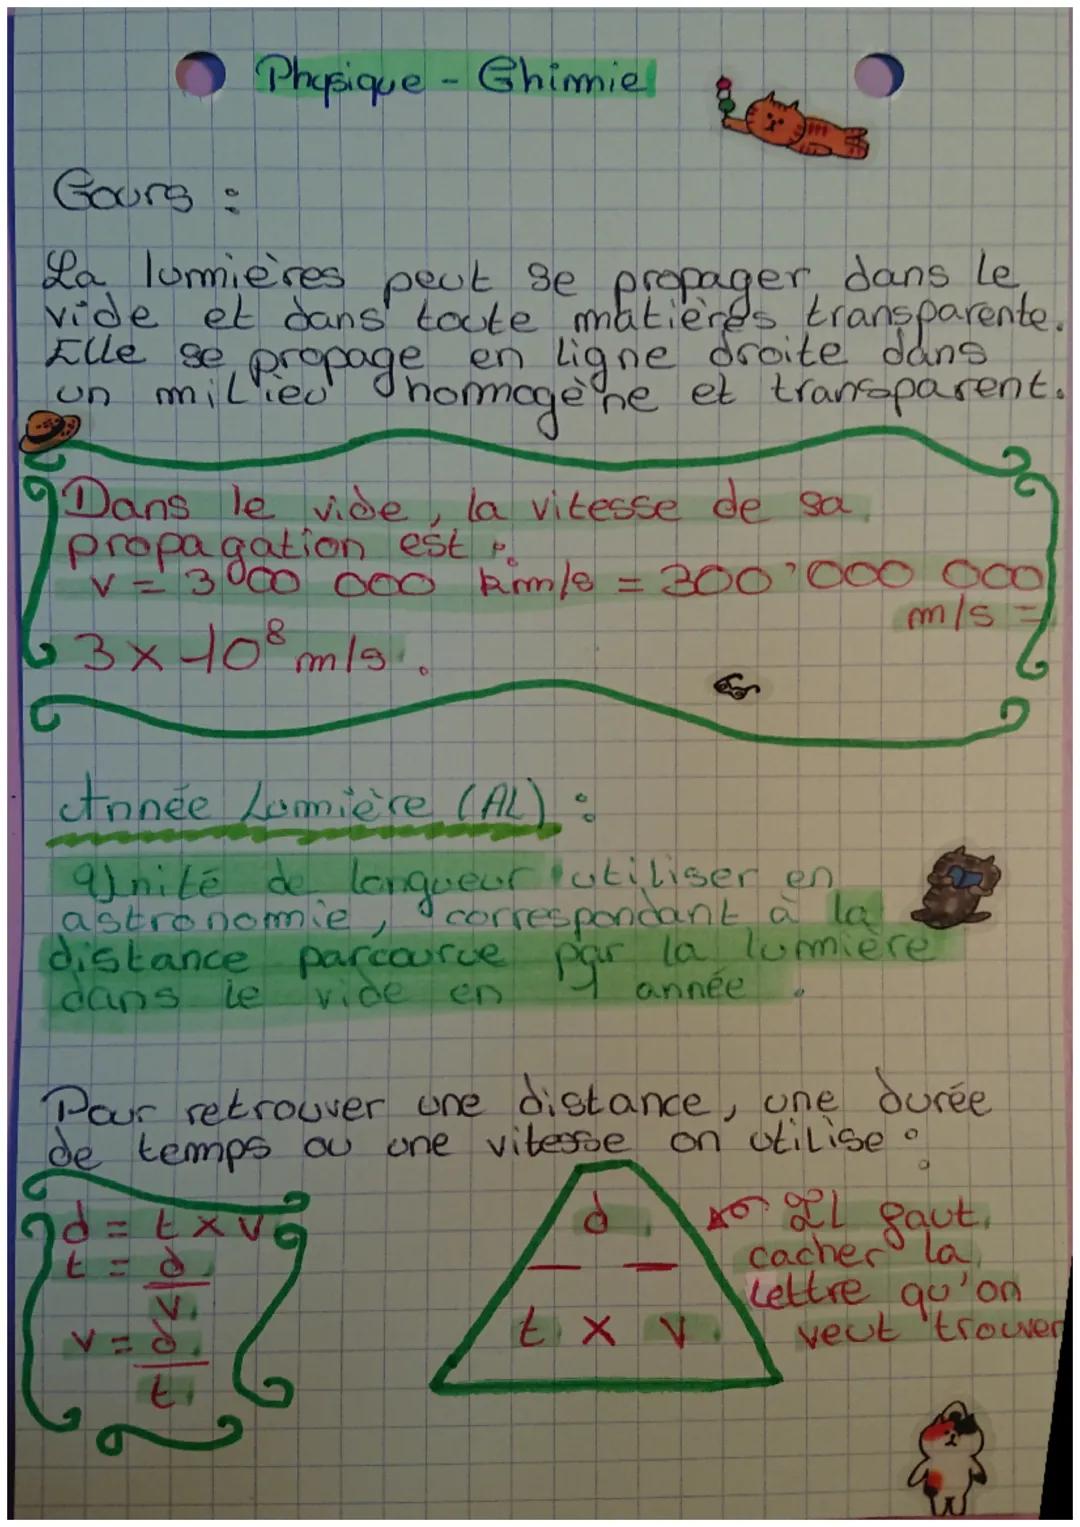 Physique - Chimie
Cours :
La lumières peut se propager dans le
vide et dans toute matières transparente.
Elle se propage en ligne droite dans
un milieu homogène et transparent.
Dans le vide, la vitesse de sa
propagation est :
v = 3000 000 km/s = 300'000 000
m/s =
3 x 10⁸ m/s.
Année Lumière (AL) :
Unité de longueur utiliser en
astronomie, correspondant à la
distance parcourue par la lumière
dans le vide en 1 année.
Pour retrouver une distance, une durée
de temps ou une vitesse on utilise :
d = t x v
t = d
v
v = d
t
d
t x v
Il faut
cacher la
lettre qu'on
veut trouver